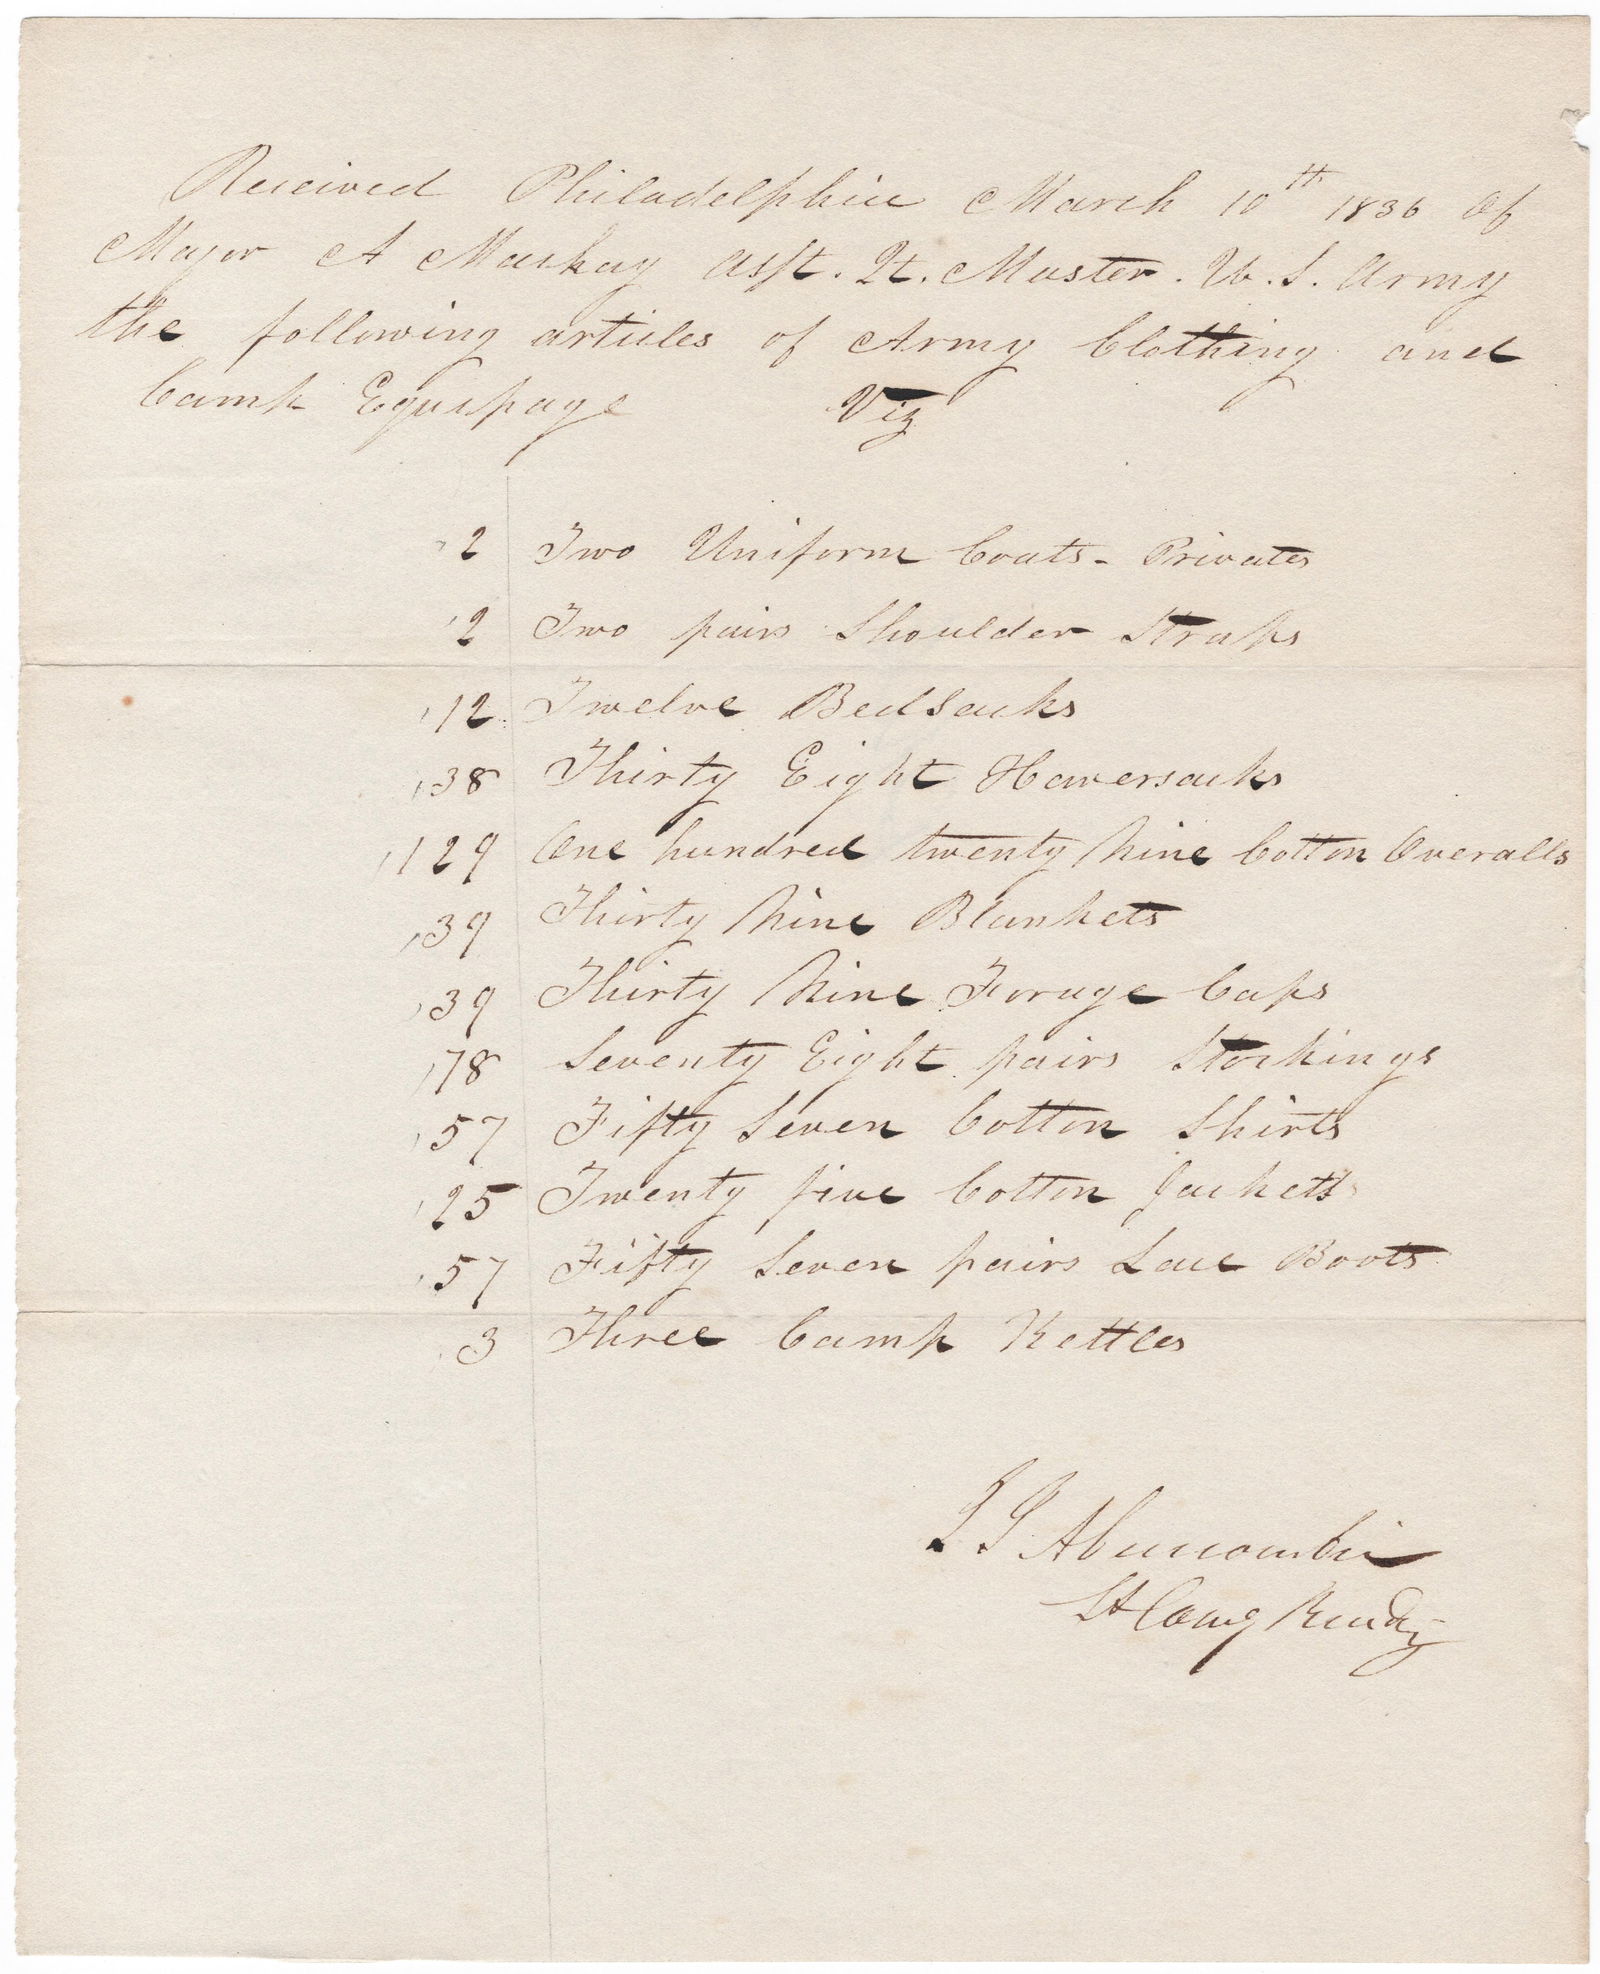 Received Philadelphia March 10th 1836 of
Major A Mackay Asst. Qt. Master. U. S. Army
the following articles of Army Clothing and
Camp Equipage Viz
2 Two Uniform Coats - Privates
2 Two pairs Shoulder Straps
12 Twelve Bedsacks
38 Thirty Eight Haversacks
129 One hundred twenty Nine Cotton Overalls
39 Thirty Nine Blankets
39 Thirty Nine Forage Caps
78 Seventy Eight pairs Stockings
57 Fifty Seven Cotton Shirts
25 Twenty five Cotton Jackets
57 Fifty Seven pairs Lace Boots
3 Three Camp Kettles
J J Abercrombie
Lt Comg